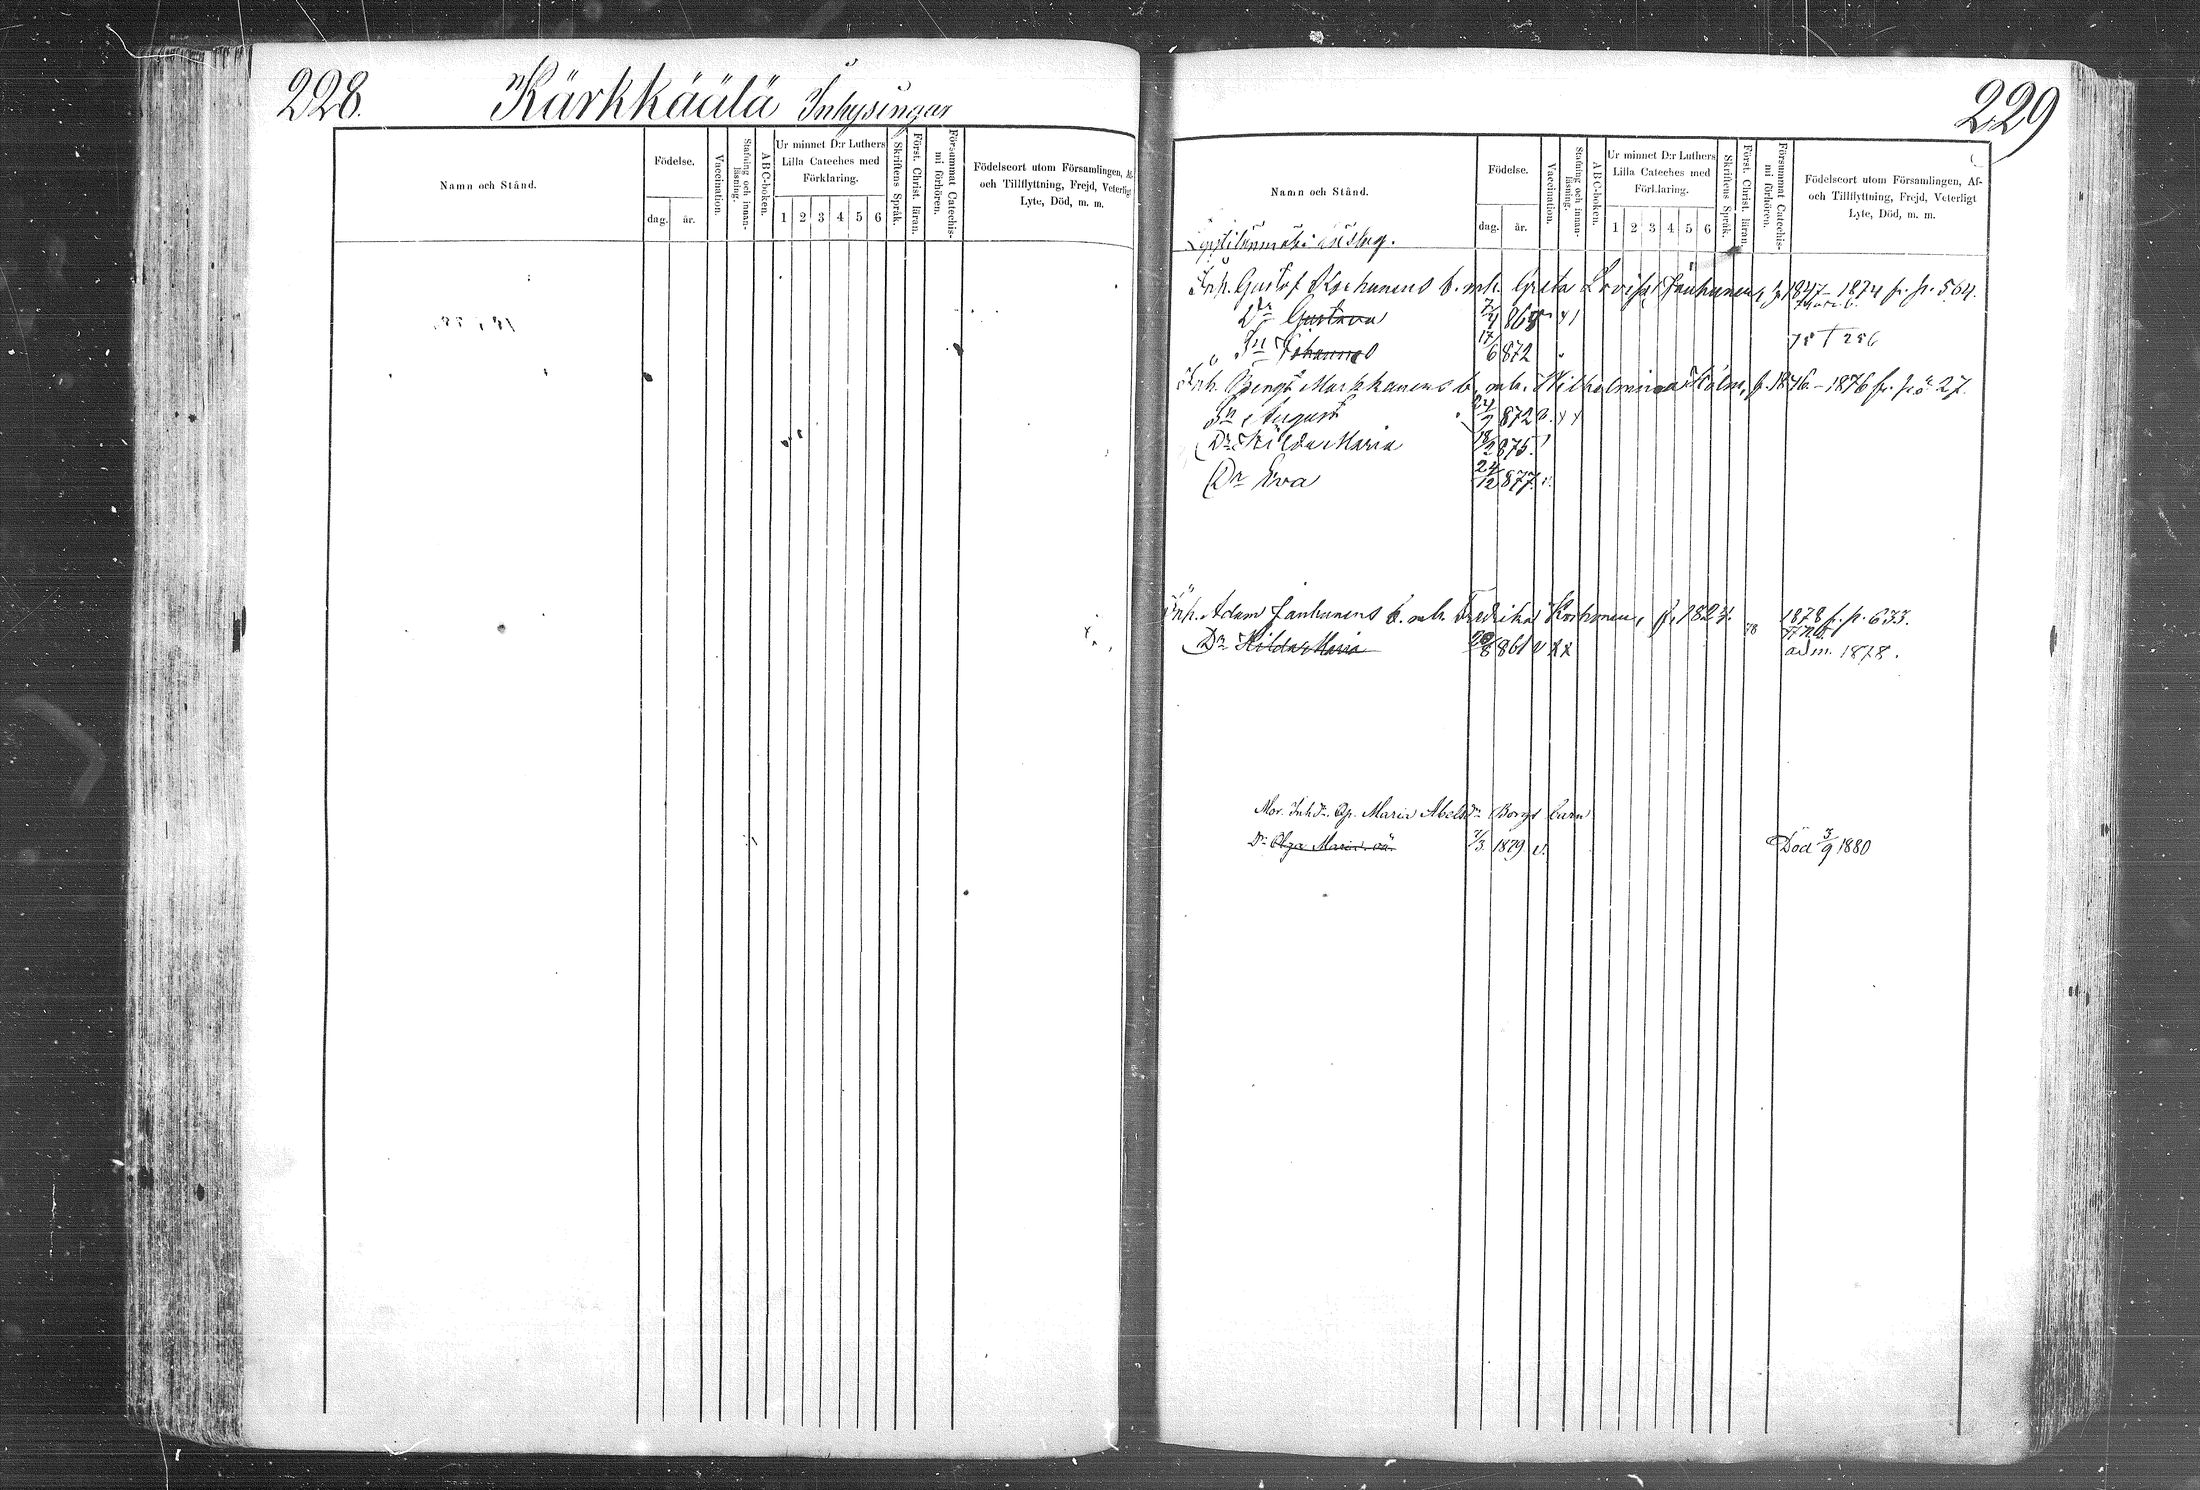 228.
Kärkkäälä Inhysingar
Namn och Stånd.
Födelse.
dag.
år.
Vaccination.
Stafning och innan-
läsning.
ABC-boken.
Ur minnet D:r Luthers
Lilla Cateches med
Förklaring.
1 2 3 4 5 6
Skriftens Språk.
Först. Christ. läran.
Försummat Catechis-
mi förhören.
Födelseort utom Församlingen, Af-
och Tillflyttning, Frejd, Veterligt
Lyte, Död, m. m.
229
Namn och Stånd.
Födelse.
dag.
år.
Vaccination.
Stafning och innan-
läsning.
ABC-boken.
Ur minnet D:r Luthers
Lilla Cateches med
Förklaring.
1 2 3 4 5 6
Skriftens Språk.
Först. Christ. läran.
Försummat Catechis-
mi förhören.
Födelseort utom Församlingen, Af-
och Tillflyttning, Frejd, Veterligt
Lyte, Död, m. m.
Inh. Gustaf Korhonens b. m. h. Greta Lovisa Janhunen, f. 1847 – 1874 fr. p. 564.
Dr Gustava 868
Sn Johannes 17/6 872
Inh. Bengt Markkanens b. m. h. Wilhelmina Holm, f. 1846 – 1876 fr. p. 27.
Sn August 872
Dr Hilda Maria 875
Dr Eva 24/12 877. v.
Inh. Adam Janhunens b. m. h. Fredrika Korhonen, f. 1824. 78 1878 f. p. 633.
Dr Hilda Maria 861 v x x adm. 1878.
Mor. Inh. Dr. Qp. Maria Abelsdr Borgs barn
Dr Olga Maria oä. 7/3 1879 v. Död 3/9 1880